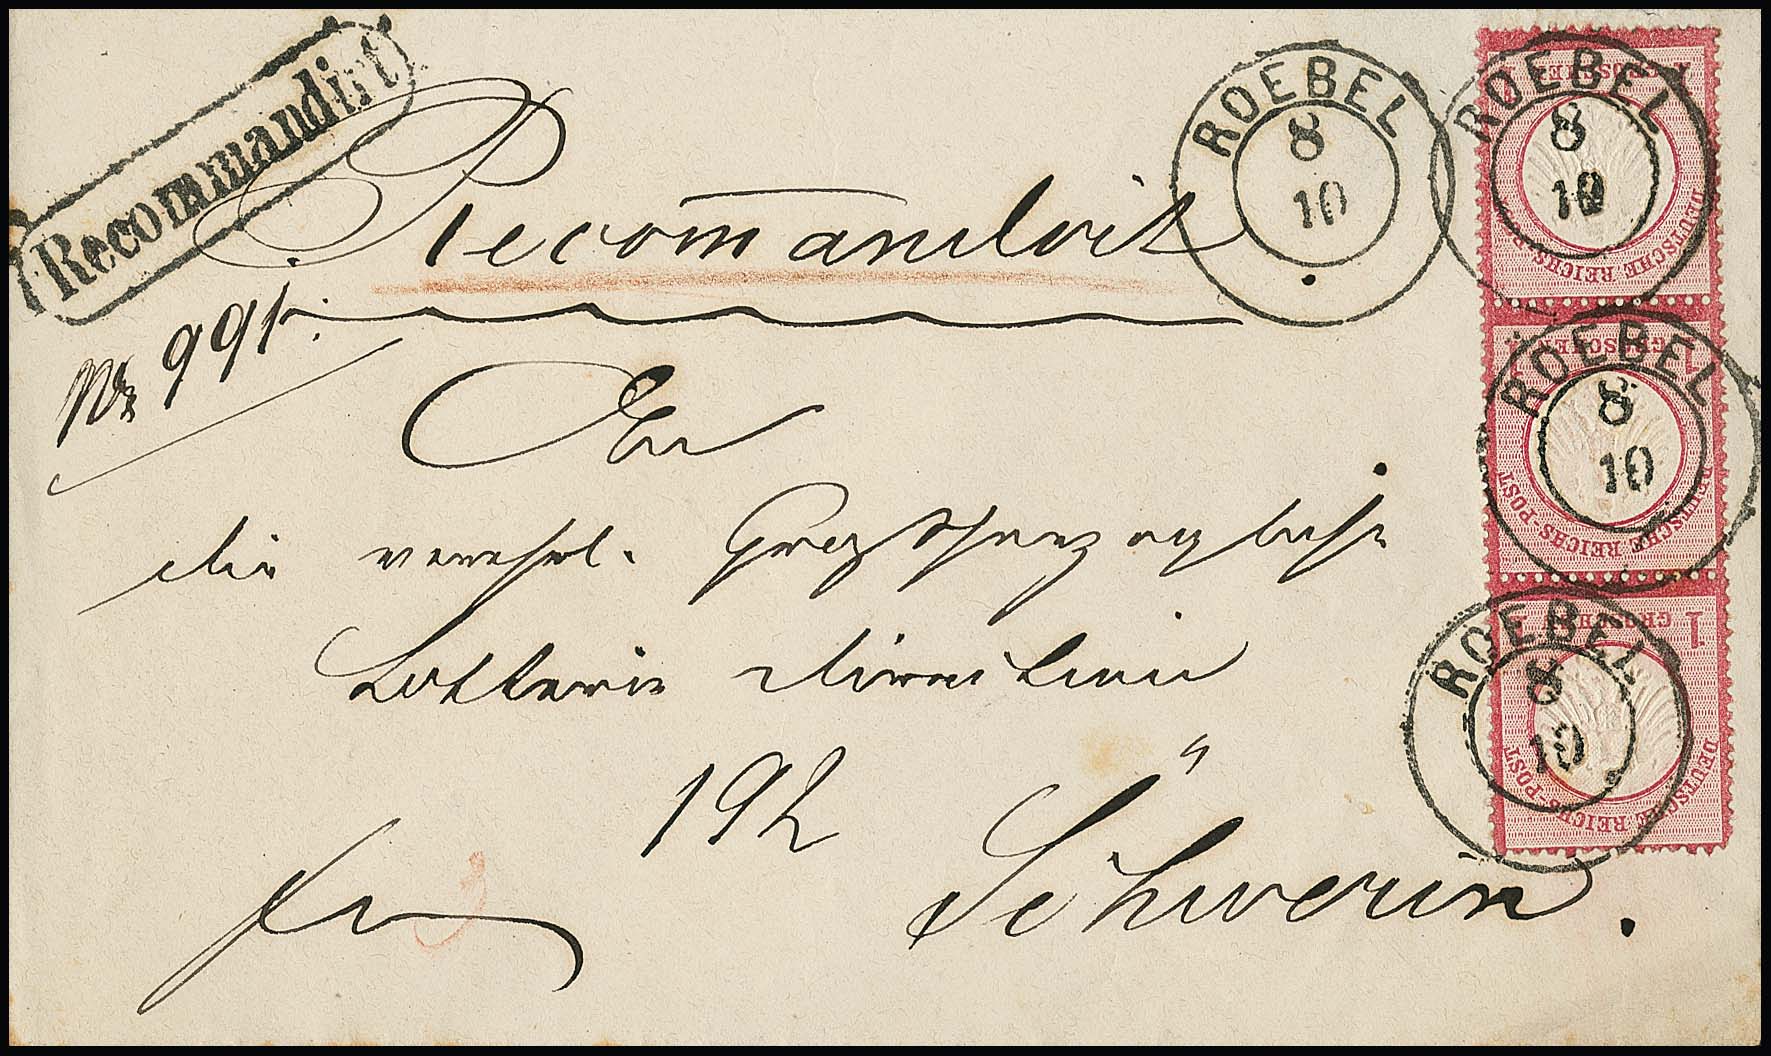 Recommandirt
Recomandirt
No 991.
ROEBEL
8
10
ROEBEL
8
10
1 GROSCHEN 1
DEUTSCHE REICHS-POST
ROEBEL
8
10
1 GROSCHEN 1
DEUTSCHE REICHS-POST
ROEBEL
8
10
1 GROSCHEN 1
DEUTSCHE REICHS-POST
An
die verehrl. Großherzogliche
Lotterie Direction
192
Schwerin.
fr